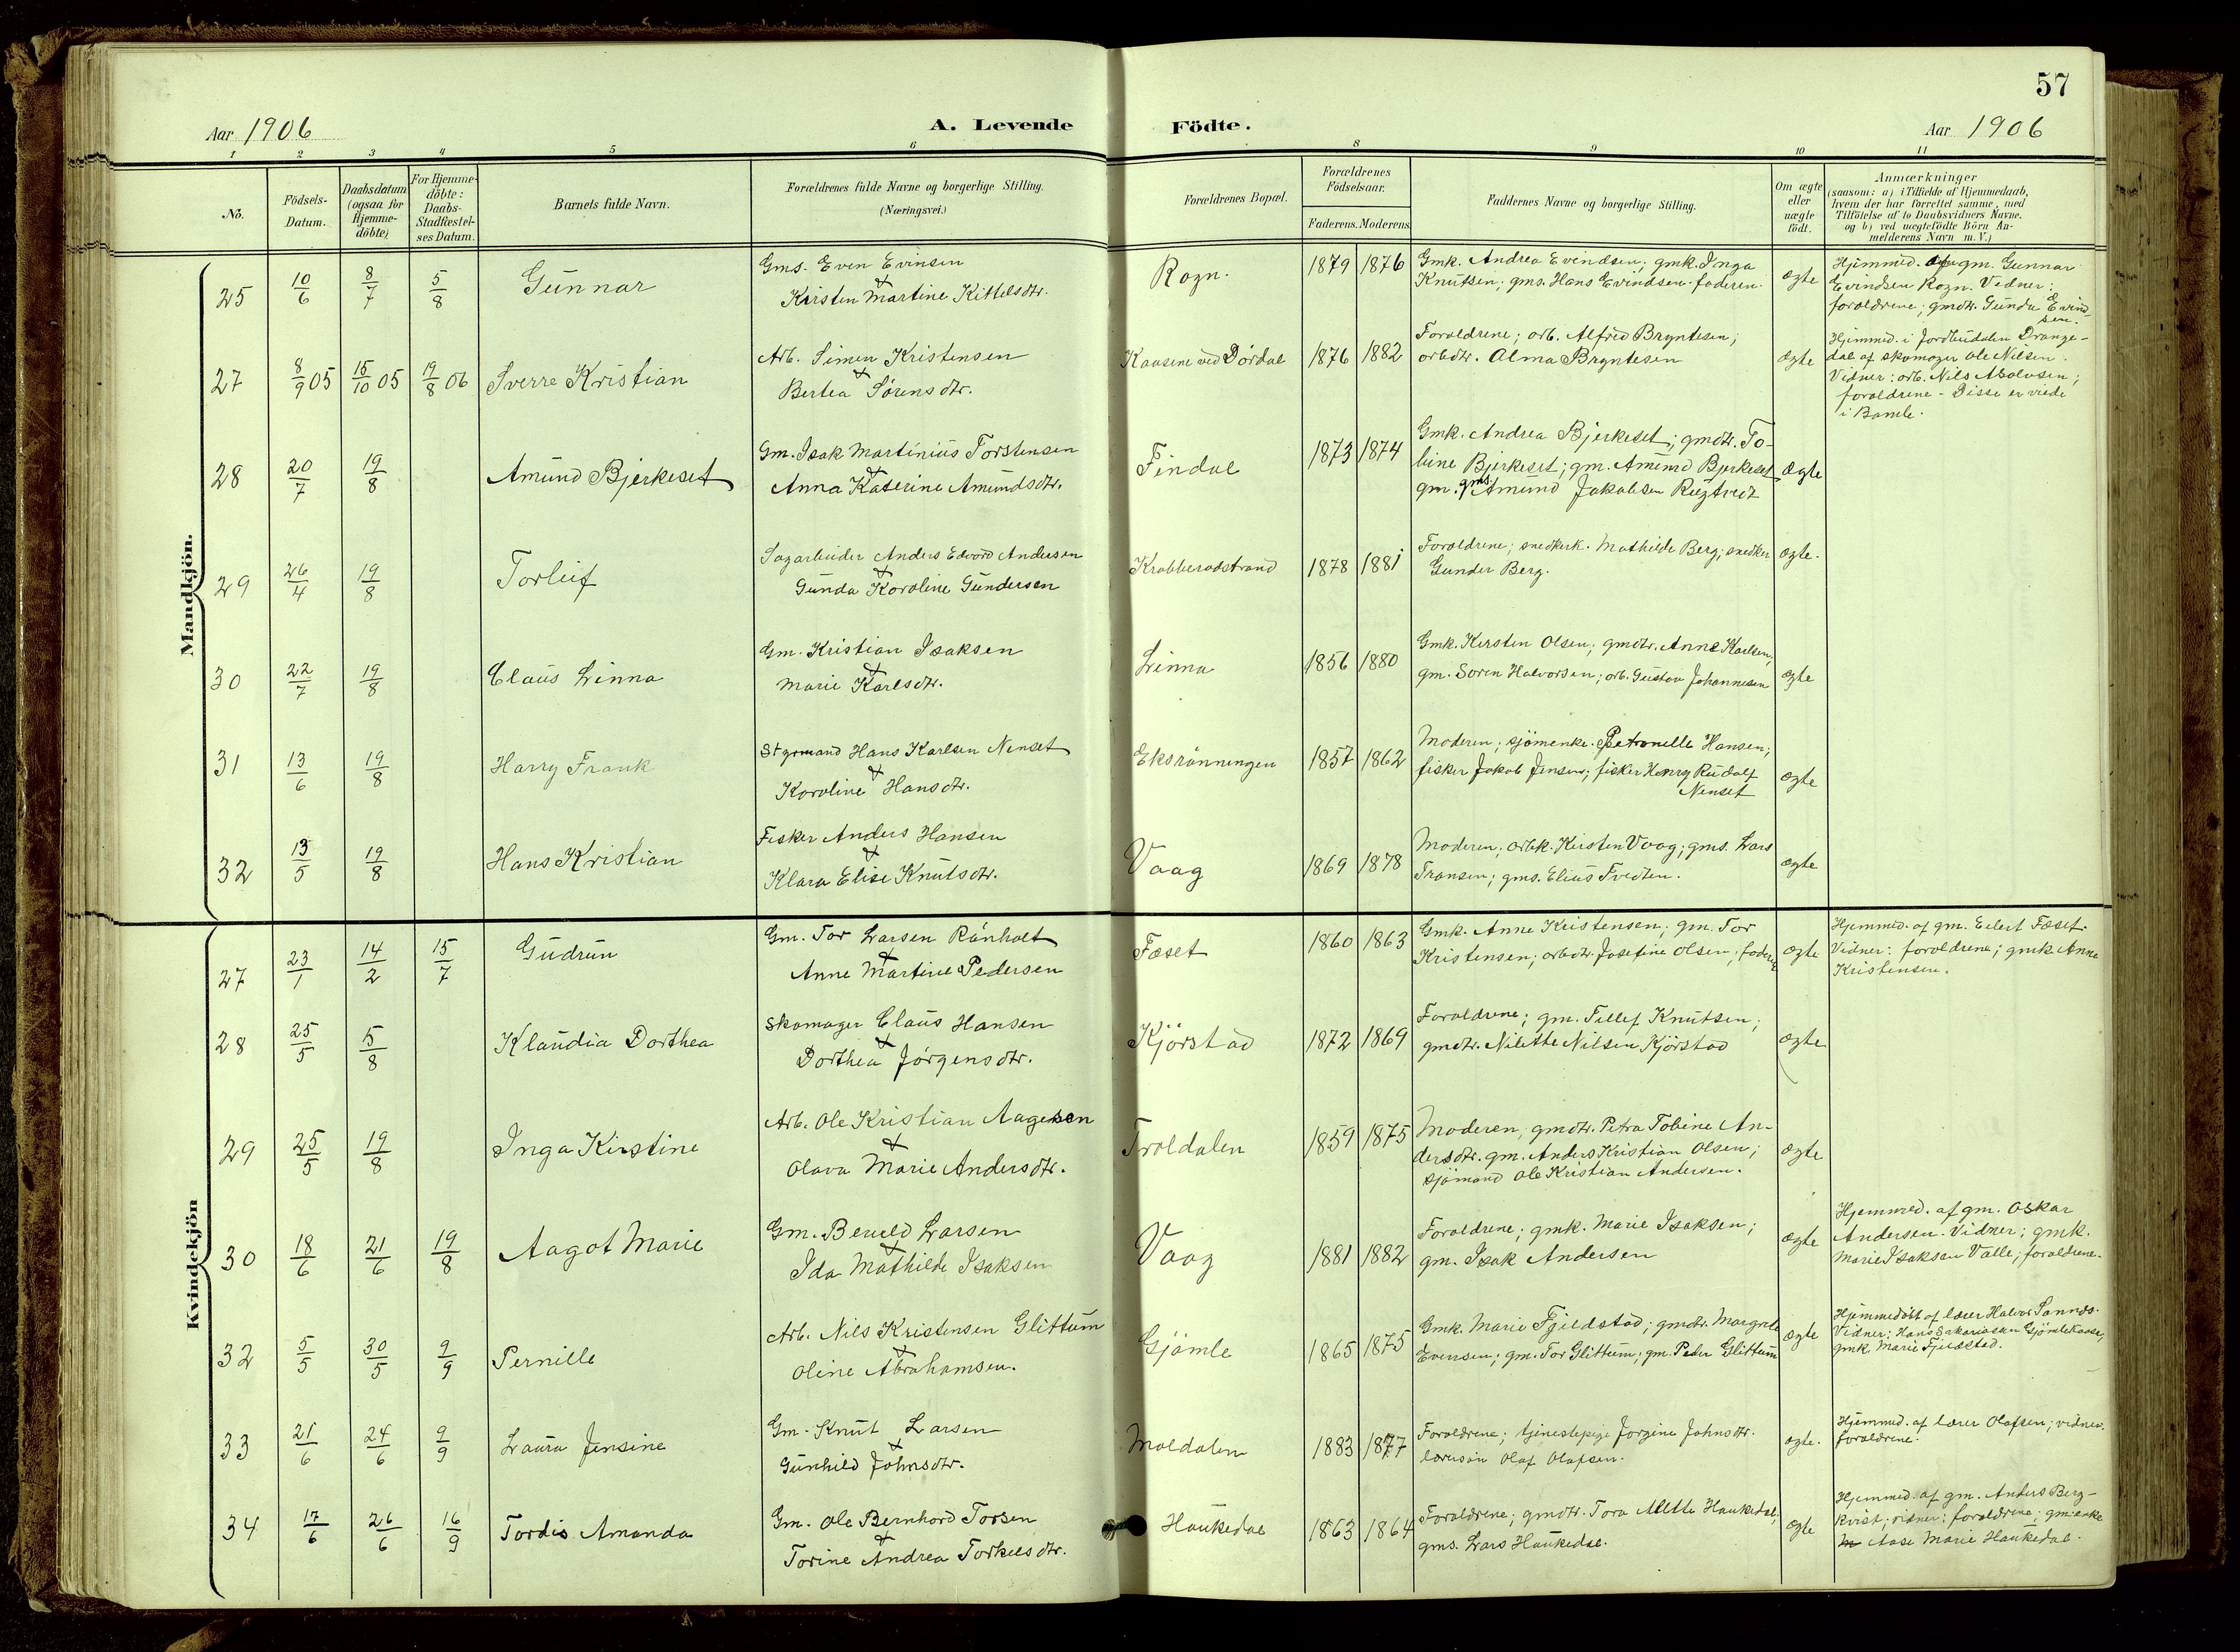 57
Aar 1906
A. Levende Födte.
Aar 1906
1 2 3 4 5 6 8 9 10 11
No.
Födsels-
Datum.
Daabsdatum
(ogsaa for
Hjemme-
döbte)
For Hjemme-
döbte:
Daabs-
Stadfæstel-
ses Datum.
Barnets fulde Navn.
Forældrenes fulde Navne og borgerlige Stilling.
(Næringsvei.)
Forældrenes Bopæl.
Forældrenes
Födselsaar.
Faderens. Moderens.
Faddernes Navne og borgerlige Stilling.
Om ægte
eller
uægte
födt.
Anmærkninger
(saasom: a) i Tilfælde af Hjemmedaab,
hvem der har forrettet samme, med
Tilföielse af to Daabsvidners Navne.
og b) ved uægtefödte Börn An-
melderens Navn m. V.)
Mandkjön.
25 10/6 8/7 5/8 Gunnar
Gms. Even Evinsen
&
Kirsten Martine Kittelsdtr.
Rogn. 1879 1876
Gmk. Andrea Evindsen; gmk. Inga
Knutsen; gms. Hans Evindsen. faderen.
ægte
Hjemmed. af gm. Gunnar
Evindsen Rogn. Vidner:
forældrene; gmdtr. Gunda Evind-
sen.
27 8/9 05 15/10 05 19/8 06 Sverre Kristian
Arb. Simen Kristensen
&
Bertea Sørensdtr.
Kaasene ved Dördal 1876 1882
Forældrene; arb. Alfred Bryntesen;
arbdtr. Alma Bryntesen
ægte
Hjemmed. i Jordbudalen Drange-
dal af skomager Ole Nilsen.
Vidner: arb. Nils
forældrene - Disse er viede
i Bamle.
28 20/7 19/8 Amund Bjerkeset
Gm. Isak Martinius Torstensen
&
Anna Katerine Amundsdtr.
Findal 1873 1874
Gmk. Andrea Bjerkeset; gmdtr. To-
bine Bjerkeset; gm. Amund Bjerkeset
gm. gms. Amund Jakobsen
Ægte
29 26/4 19/8 Torleif
Sagarbeider Anders Edvard Andersen
&
Gunda Karoline Gundersen
Krabberødstrand 1878 1881
Forældrene; snedkerk. Mathilde Berg; snedker
Gunder Berg.
ægte.
30 22/7 19/8 Claus Linna
Gm. Kristian Isaksen
&
Marie Karlsdtr.
Linna 1856 1880
Gmk. Kirsten Olsen; gmdtr. Anne Karlsen;
gm. Søren Halvorsen; arb. Gustav Johannesen
ægte
31 13/6 19/8 Harry Frank
Styrmand Hans Karlsen Nenset
&
Karoline Hansdtr.
Eksrönningen 1857 1862
Moderen; sjömenke. Petronelle Hansen;
fisker Jakob Jensen; fisker Henry Rudolf
Nenset
ægte
32 13/5 19/8 Hans Kristian
Fisker Anders Hansen
&
Klara Elise Knutsdtr.
Vaag 1869 1878
Moderen; arbk. Kirsten Vaag; gms. Lars
Fransen; gms. Elius Tvedten.
ægte
Kvindekjön
27 23/1 14/2 15/7 Gudrun
Gm. Tor Larsen Rönholt
&
Anne Martine Pedersen
Fæset 1860 1863
Gmk. Anne Kristensen; gm. Tor
Kristensen; arbdtr. Josefine Olsen; faderen
ægte
Hjemmed. af gm. Eilert Fæset.
Vidner: forældrene; gmk. Anne
Kristensen.
28 25/5 5/8 Klaudia Dorthea
Skomager Claus Hansen
&
Dorthea Jörgensdtr.
Kjörstad 1872 1869
Forældrene; gm. Tellef Knutsen;
gmdtr. Nilette Nilsen Kjörstad
ægte
29 25/5 19/8 Inga Kirstine
Arb. Ole Kristian Aagesen
&
Olava Marie Andersdtr.
Troldalen 1859 1875
Moderen; gmdtr. Petra Tobine An-
dersdtr. gm. Anders Kristian Olsen;
sjömand Ole Kristian Andersen.
ægte
30 18/6 21/6 19/8 Aagot Marie
Gm. Berueld Larsen
&
Ida Mathilde Isaksen
Vaag 1881 1882
Forældrene; gmk. Marie Isaksen;
gm. Isak Andersen
ægte
Hjemmed. af gm. Oskar
Andersen. Vidner; gmk.
Marie Isaksen Valle; forældrene.
32 5/5 30/5 9/9 Pernille
Arb. Nils Kristensen Glittum
&
Oline Abrahamsen.
Gjömle 1865 1875
Gmk. Marie Fjeldstad; gmdtr. Margrete
Evensen; gm. Tor Glittum; gm. Peder Glittum
ægte
Hjemmedöbt af lærer Halvor Sannes.
Vidner: Hans Sakariasen Gjömlekaase,
gmk. Marie Fjeldstad.
33 21/6 24/6 9/9 Laura Jensine
Gm. Knut Larsen
&
Gunhild Johnsdtr.
Moldalen 1883 1877
Forældrene; tjenestepige Jorgine Johnsdtr.
lærersön Olaf Olafsen.
ægte.
Hjemmed. af lærer Olafsen; vidner.
forældrene.
34 17/6 26/6 16/9 Tordis Amanda
Gm. Ole Bernhard Torsen
&
Torine Andrea Torkelsdtr.
Haukedal 1863 1864
Forældrene; gmdtr. Tora Mette Haukedal;
gms. Lars Haukedal.
ægte
Hjemmed. af gm. Anders Berg-
kvist; vidner: forældrene; gmenke
Aase Marie Haukedal.